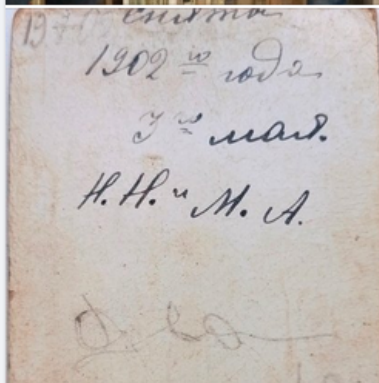 снята
1902 го года
3 го мая.
Н. Н. и М. А.